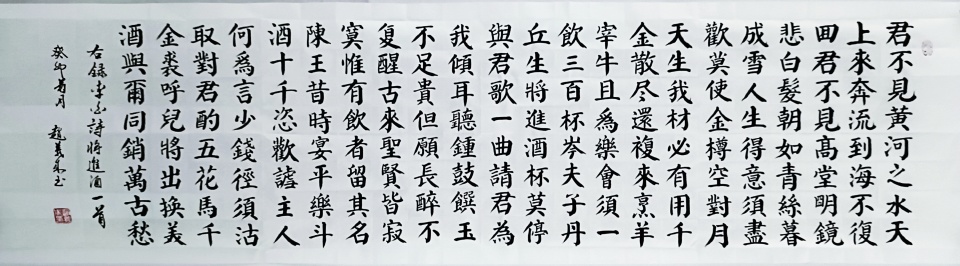 君不見黃河之水天
上來奔流到海不復
囬君不見高堂明鏡
悲白髮朝如青絲暮
成雪人生得意須盡
歡莫使金樽空對月
天生我材必有用千
金散尽還複來烹羊
宰牛且為樂會須一
飲三百杯岑夫子丹
丘生將進酒杯莫停
與君歌一曲請君為
我傾耳聽鍾鼓饌玉
不足貴但願長醉不
復醒古來聖賢皆寂
寞惟有飲者留其名
陳王昔時宴平樂斗
酒十千恣歡謔主人
何為言少錢徑須沽
取對君酌五花馬千
金裘呼兒將出換美
酒與爾同銷萬古愁
右錄李白詩將進酒一首
癸卯 月 趙